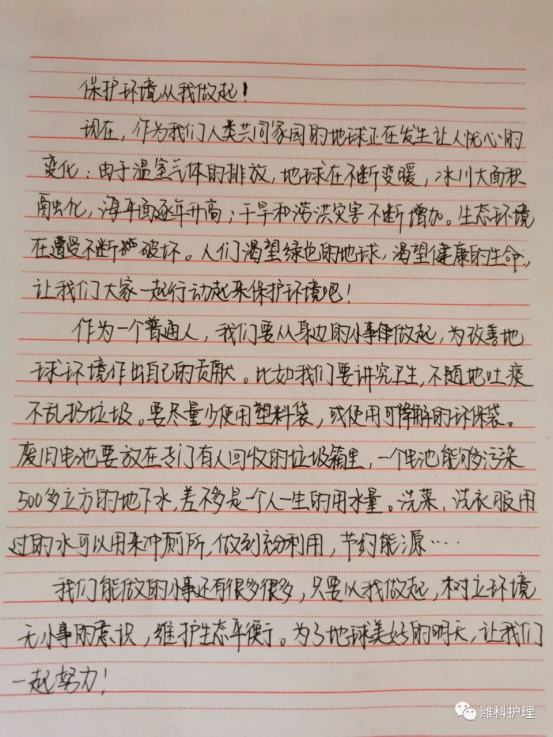 保护环境从我做起！
现在，作为我们人类共同家园的地球正在发生让人忧心的
变化：由于温室气体的排放，地球在不断变暖，冰川大面积
融化，海平面逐年升高；干旱和涝洪灾害不断增加。生态环境
在遭受不断破坏。人们渴望绿色的地球，渴望健康的生命，
让我们大家一起行动起来保护环境吧！
作为一个普通人，我们要从身边的小事做起，为改善地
球环境作出自己的贡献。比如我们要讲究卫生，不随地吐痰
不乱扔垃圾。要尽量少使用塑料袋，或使用可降解的环保袋。
废旧电池要放在专门有人回收的垃圾箱里，一个电池能够污染
500多立方的地下水，差不多是一个人一生的用水量。洗菜、洗衣服用
过的水可以用来冲厕所，做到充分利用，节约能源……
我们能做的小事还有很多很多，只要从我做起，树立环境
无小事的意识，维护生态平衡。为了地球美好的明天，让我们
一起努力！
潍科护理